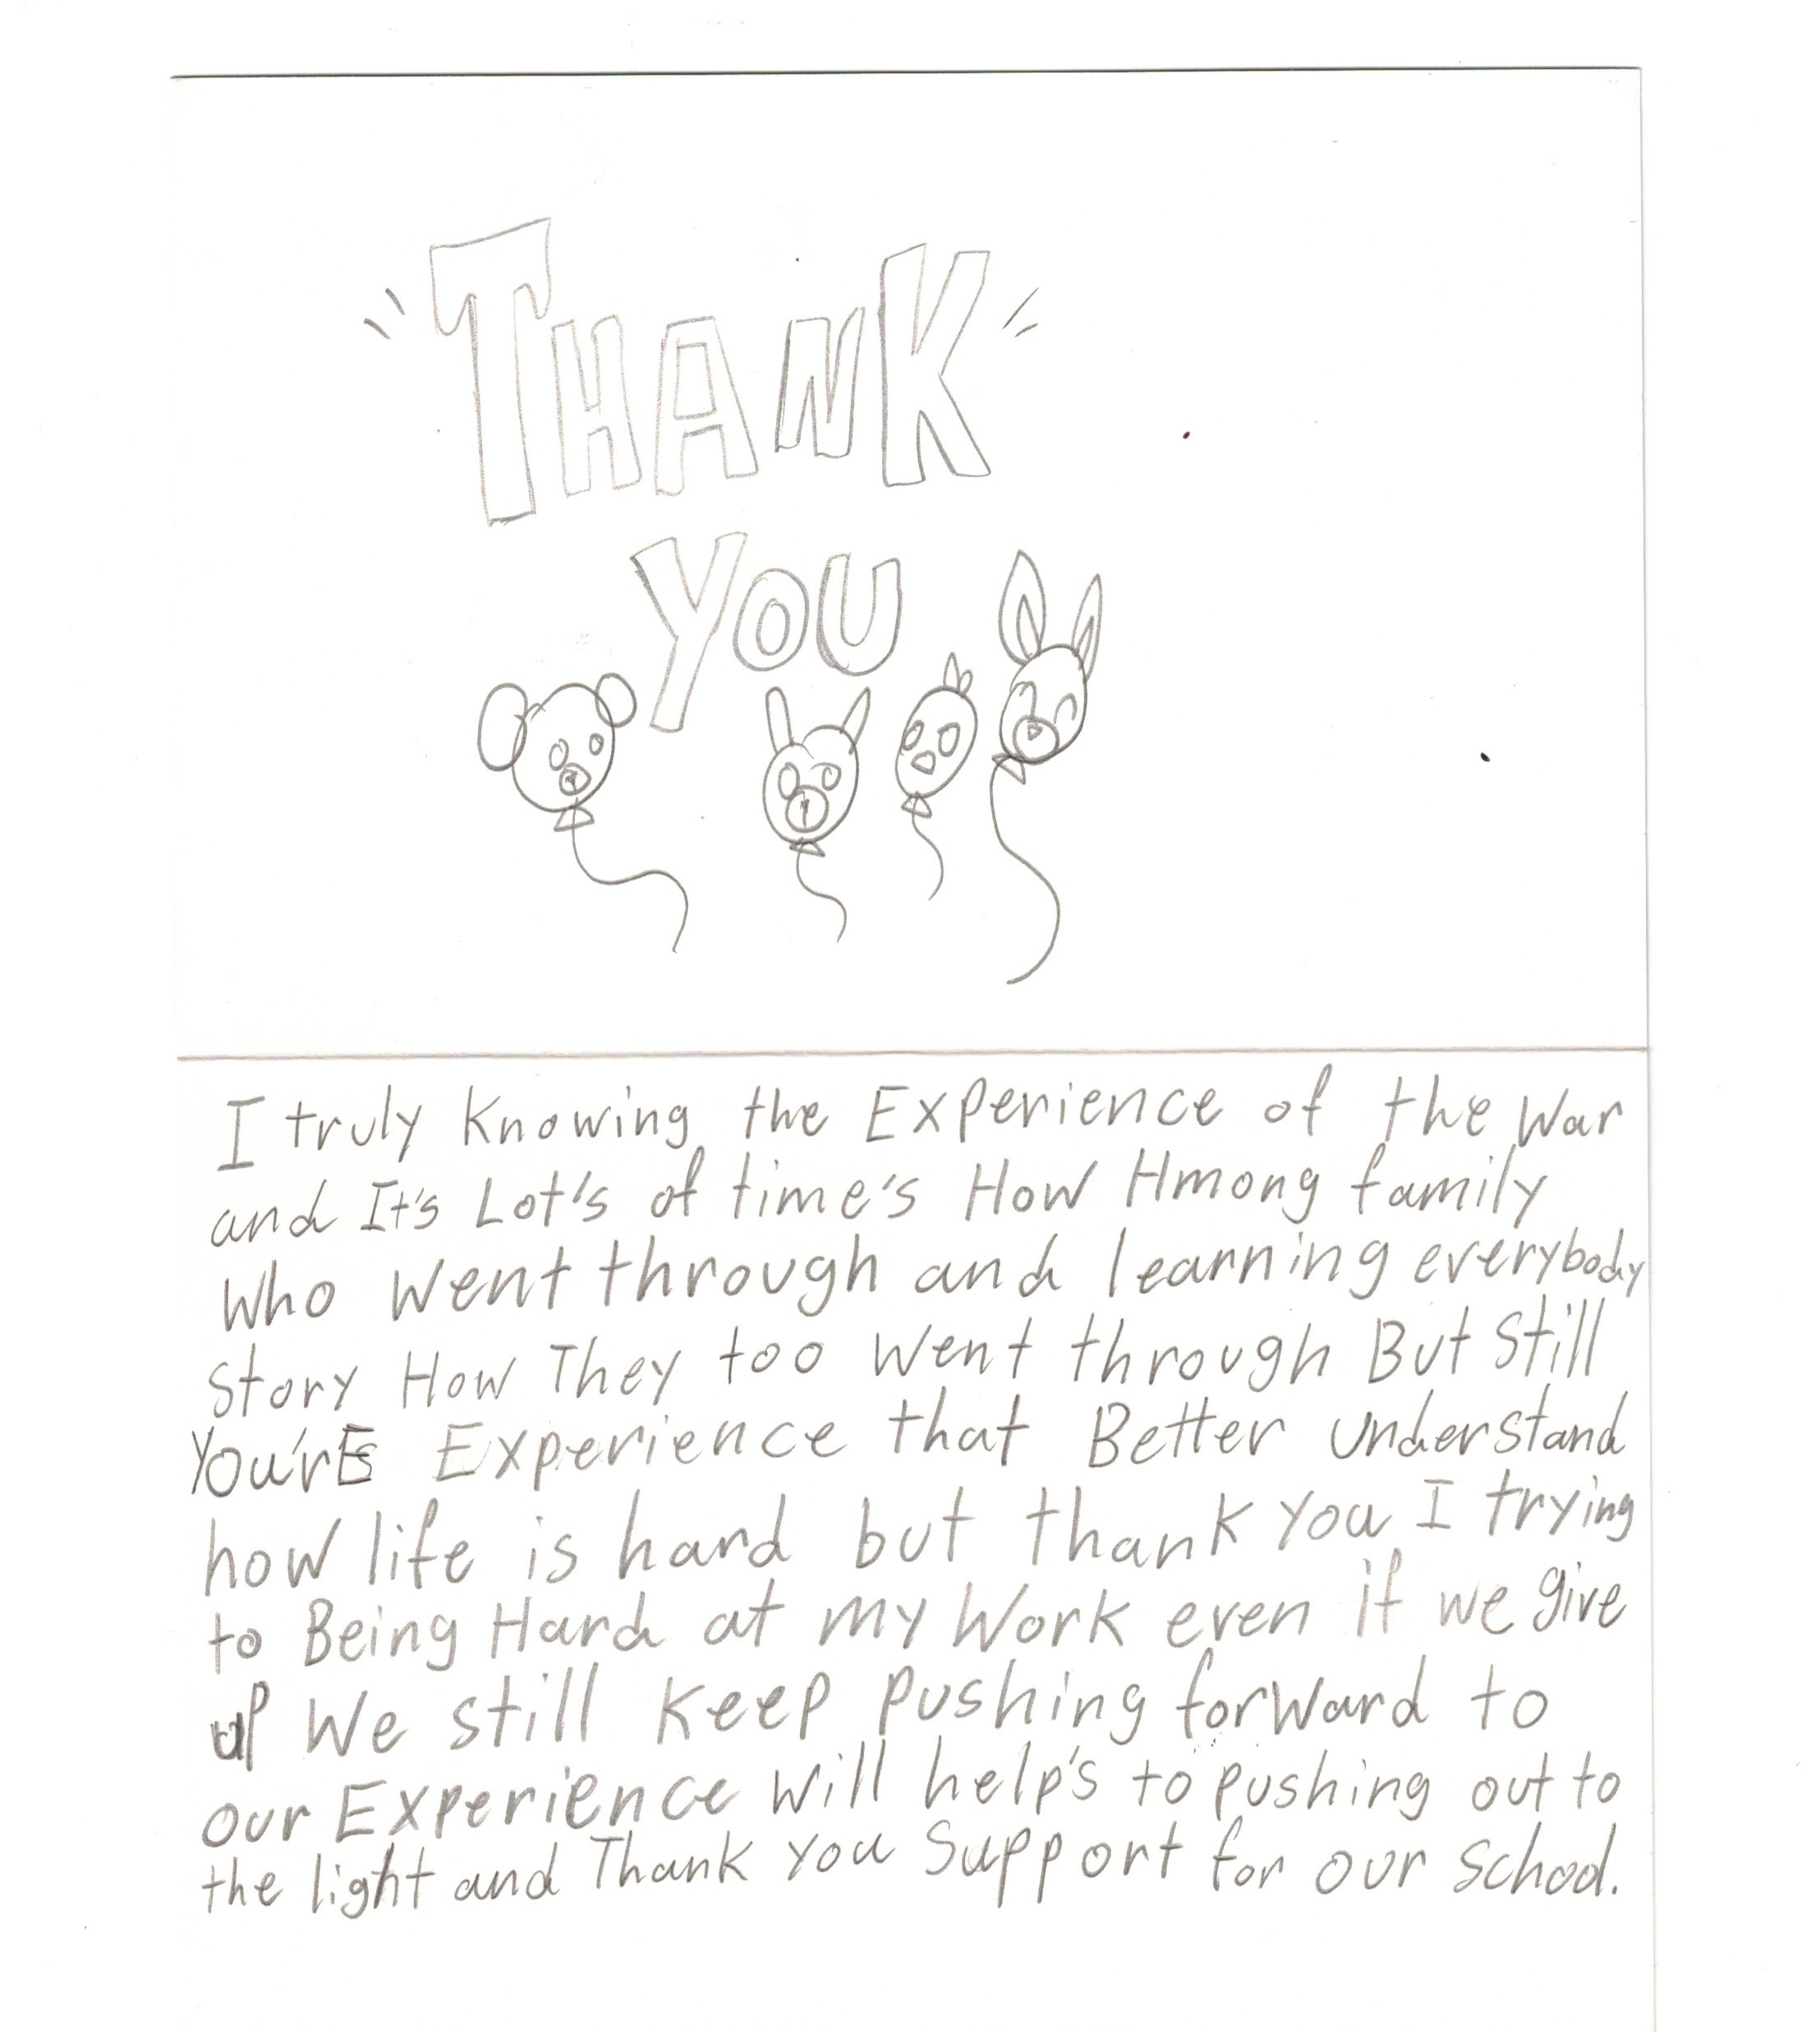 THANK
YOU
I truly Knowing the Experience of the War
and It's Lot's of time's How Hmong family
Who Went through and learning everybody
Story How They too Went through But Still
You'rE Experience that Better Understand
how life is hard but thank You I trying
to Being Hard at my Work even if we give
up We still Keep pushing forward to
our Experience Will help's to pushing out to
the light and Thank You Support for our School.